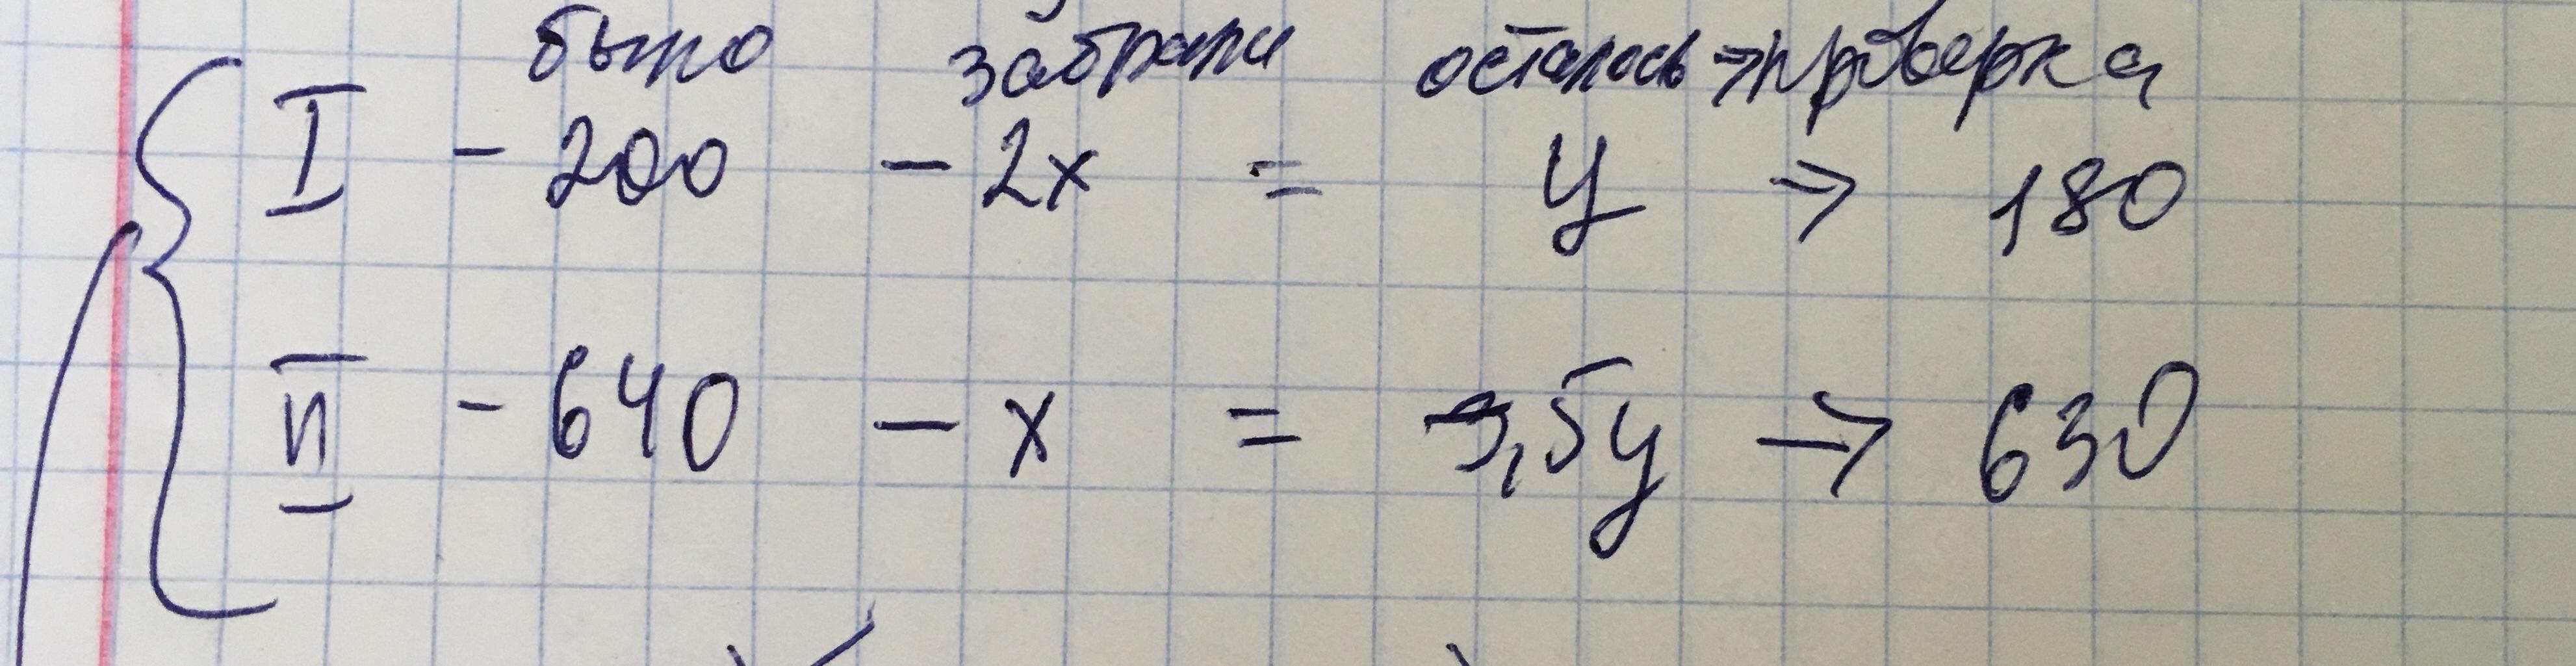 было забрали осталось → проверка
I - 200 - 2x = y → 180
II - 640 - x = 3,5y → 630